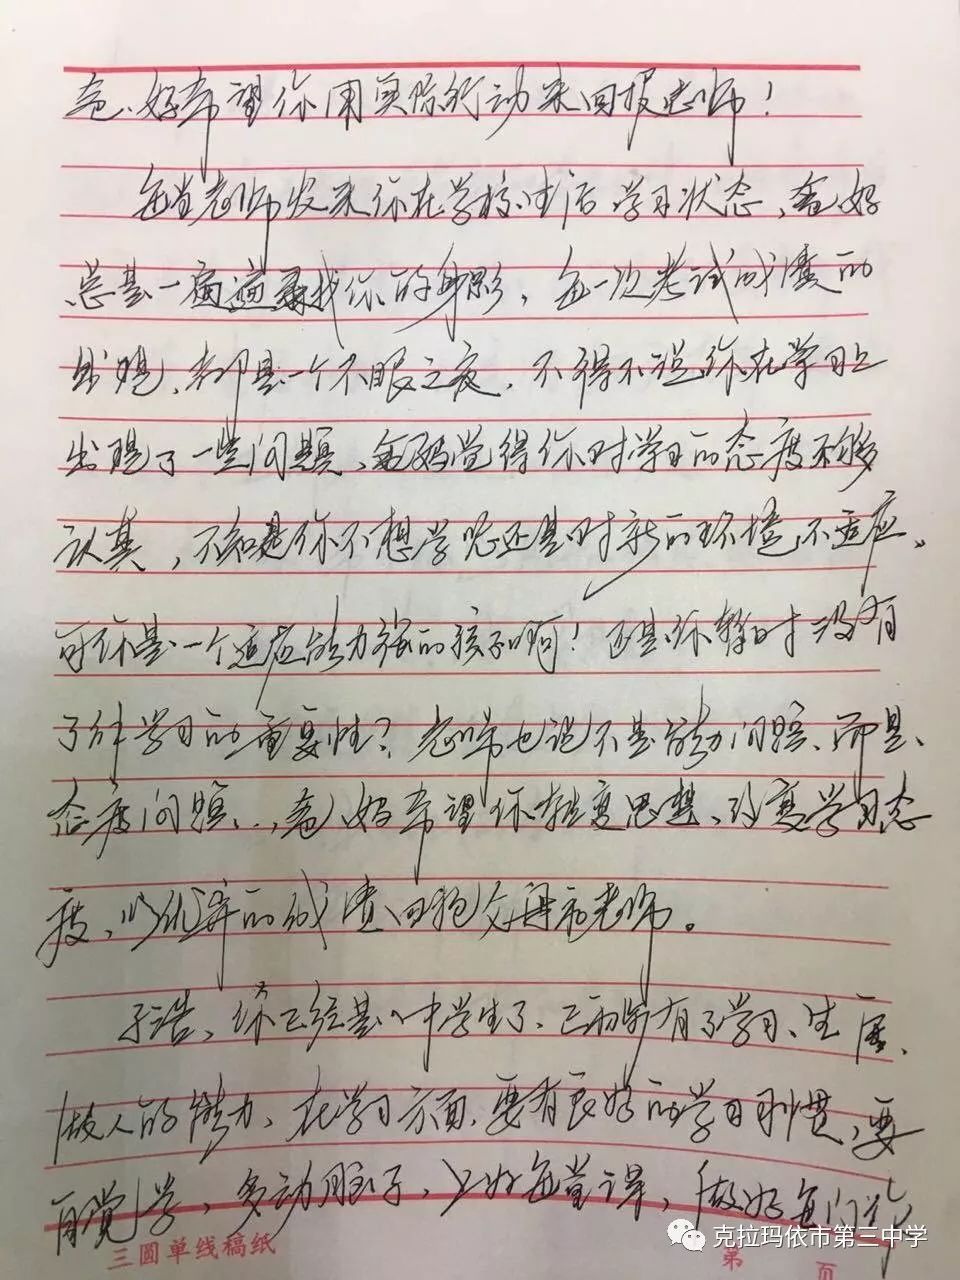 爸妈希望你用实际行动来回报老师！
每当老师发来你在学校生活学习状态，爸妈
总是一遍遍寻找你的身影，每一次考试成绩的
出现，都是一个不眠之夜，不得不说你在学习上
出现了一些问题，爸妈觉得你对学习的态度不够
认真，不知是你不想学呢还是对新的环境不适应。
可你是一个适应能力强的孩子啊！还是你暂时没有
了解学习的重要性？老师也说不是能力问题、而是
态度问题…，爸妈希望你转变思想、改变学习态
度、以优异的成绩回报父母和老师。
子浩、你已经是中学生了、已初步有了学习、生活、
做人的能力、在学习方面，要有良好的学习习惯，要
自觉学，多动脑子，上好每堂课，做好每门作
三圆单线稿纸
第 页
克拉玛依市第三中学